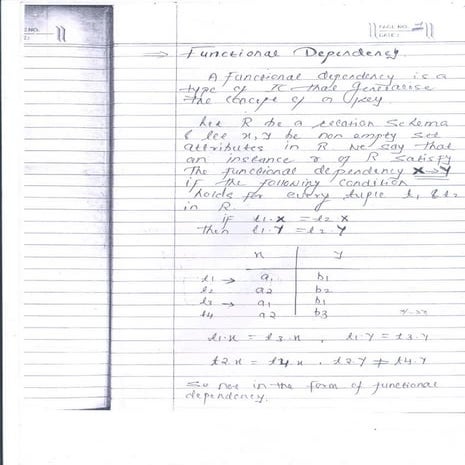 PAGE NO.
DATE:
→ Functional Dependency.
A functional dependency is a
type of IC that generalise
the concept of a key
Let R be a relation schema
& let x, y be non empty set
attributes in R we say that
an instance r of R satisfy
The functional dependency X→Y
if the following condition
holds for every tuple t1 & t2
in R.
if t1.X = t2.X
then t1.Y = t2.Y
x y
t1 → a1 b1
t2 a2 b2
t3 → a1 b1
t4 a2 b3
t1.x = t3.x , t1.Y = t3.Y
t2x = t4x . t2Y ≠ t4.Y
So not in the form of functional
dependency.